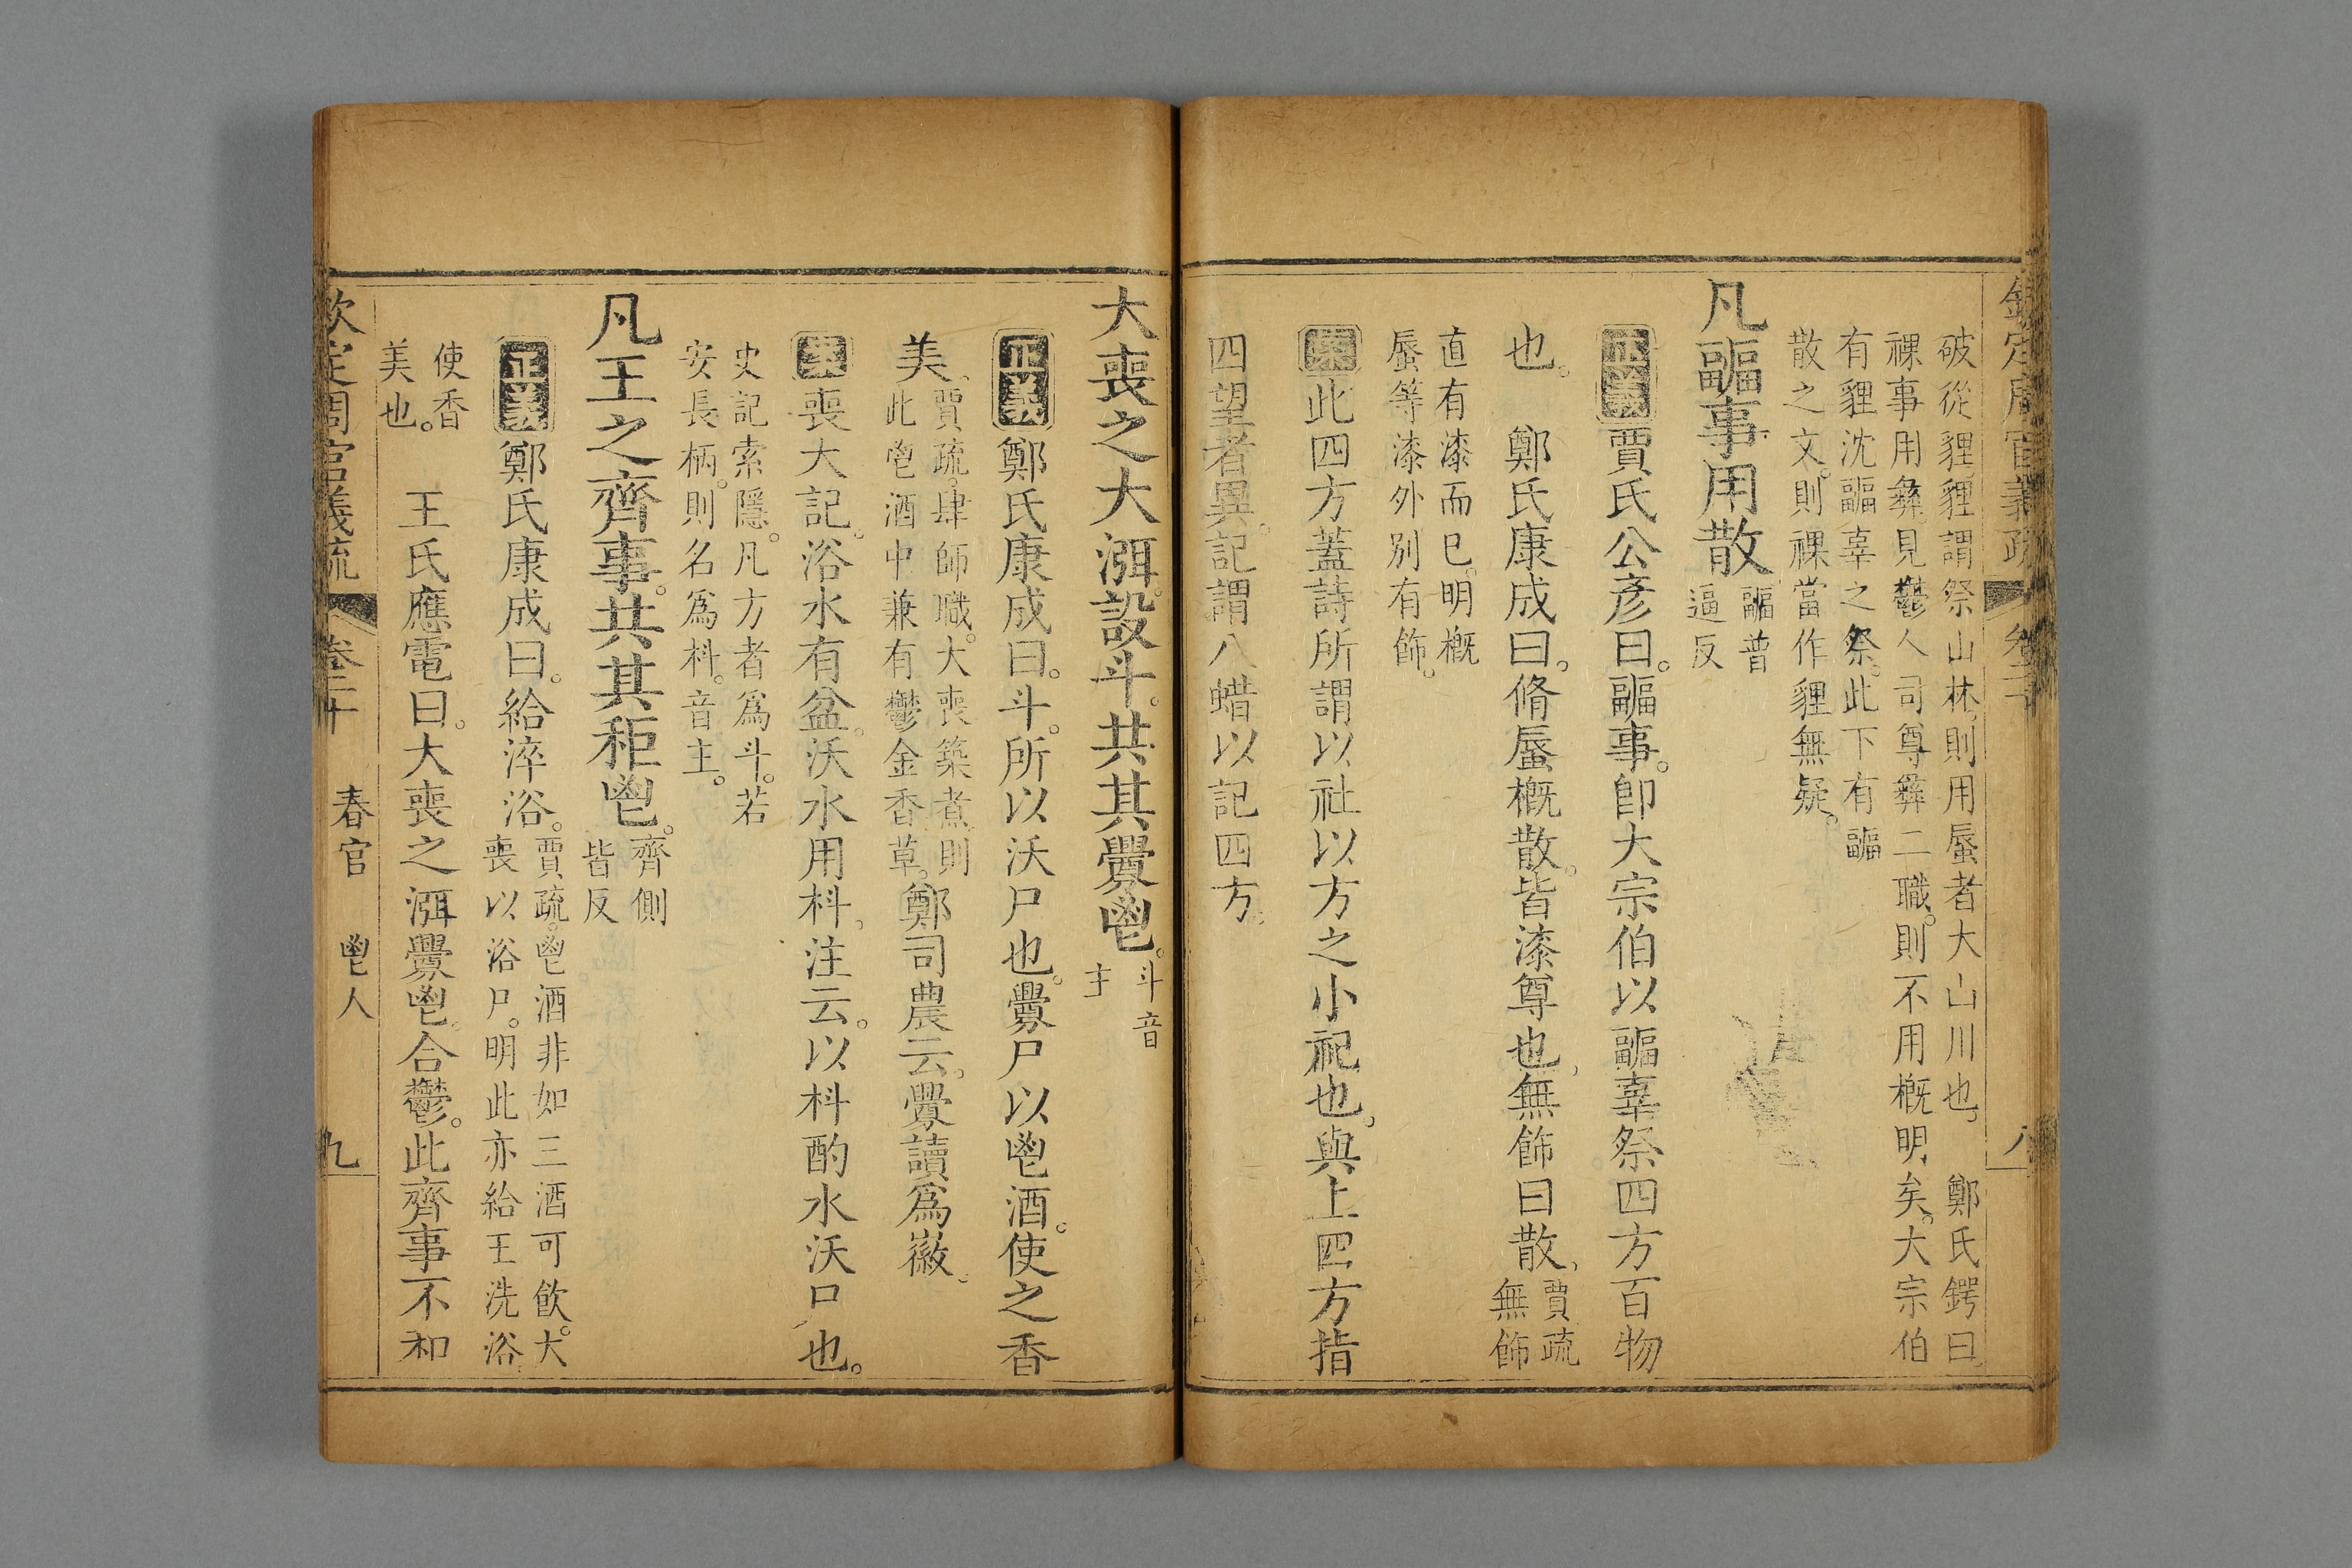 欽定周官義疏 卷二十 八
破從貍貍謂祭山林則用蜃者大山川也。 鄭氏鍔曰
祼事用彝。見鬱人司尊彝二職。則不用概明矣。大宗伯
有貍沈疈辜之祭。此下有疈
散之文。則祼當作貍無疑。
凡疈事用散疈普
逼反
正義賈氏公彥曰。疈事。卽大宗伯以疈辜祭四方百物
也。 鄭氏康成曰。脩蜃概散。皆漆尊也。無飾曰散。賈疏
無飾
直有漆而已。明概
蜃等漆外別有飾。
案此四方蓋詩所謂以社以方之小祀也。與上四方指
四望者異。記謂八蜡以記四方。
大喪之大渳。設斗。共其釁鬯。斗音
主
正義鄭氏康成曰。斗。所以沃尸也。釁尸以鬯酒。使之香
美。賈疏。肆師職。大喪築煮。則
此鬯酒中兼有鬱金香草。鄭司農云。釁讀爲徽。
案喪大記。浴水有盆。沃水用枓。注云。以枓酌水沃尸也。
史記索隱。凡方者爲斗。若
安長柄。則名爲枓。音主。
凡王之齊事。共其秬鬯。齊側
皆反
正義鄭氏康成曰。給淬浴。賈疏。鬯酒非如三酒可飲。大
喪以浴尸。明此亦給王洗浴。
使香
美也。 王氏應電曰。大喪之渳釁鬯。合鬱。此齊事不和
欽定周官義疏 卷二十 春官 鬯人 九